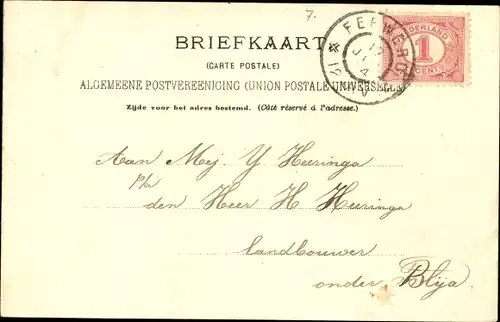 7.
BRIEFKAART
(CARTE POSTALE)
ALGEMEENE POSTVEREENIGING (UNION POSTALE UNIVERSELLE)
Zijde voor het adres bestemd. (Côté réservé à l'adresse.)
NEDERLAND
1
CENT
FERWERD
Aan Mej. Y Heeringa
p/a
den Heer H Heeringa
landbouwer
onder Blija